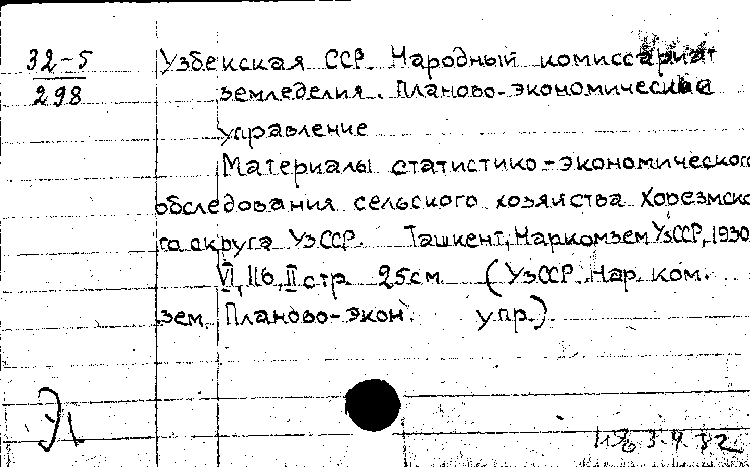 32-5
298
Узбекская ССР. Народный комиссариат
земледелия. Планово-экономическое
управление
Материалы статистико-экономического
обследования сельского хозяйства Хорезмско
го округа УзССР. Ташкент, Наркомзем УзССР, 1930
VI, 116, II стр 25см (УзССР. Нар. ком.
зем. Планово-экон. упр.).
3.4.32